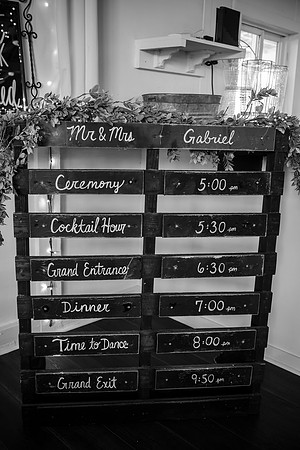 Mr & Mrs Gabriel
Ceremony 5:00 pm
Cocktail Hour 5:30 pm
Grand Entrance 6:30 pm
Dinner 7:00 pm
Time to Dance 8:00 pm
Grand Exit 9:50 pm